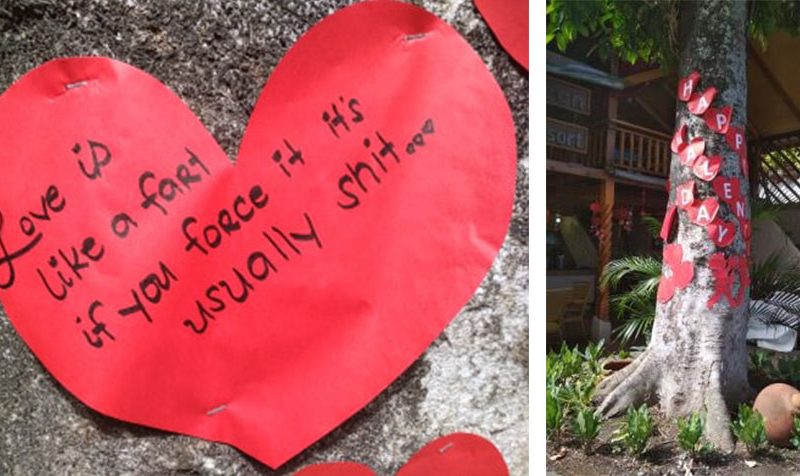 Love is
like a fart
if you force it it's
usually shit...
HAPP
ALEN
DAY